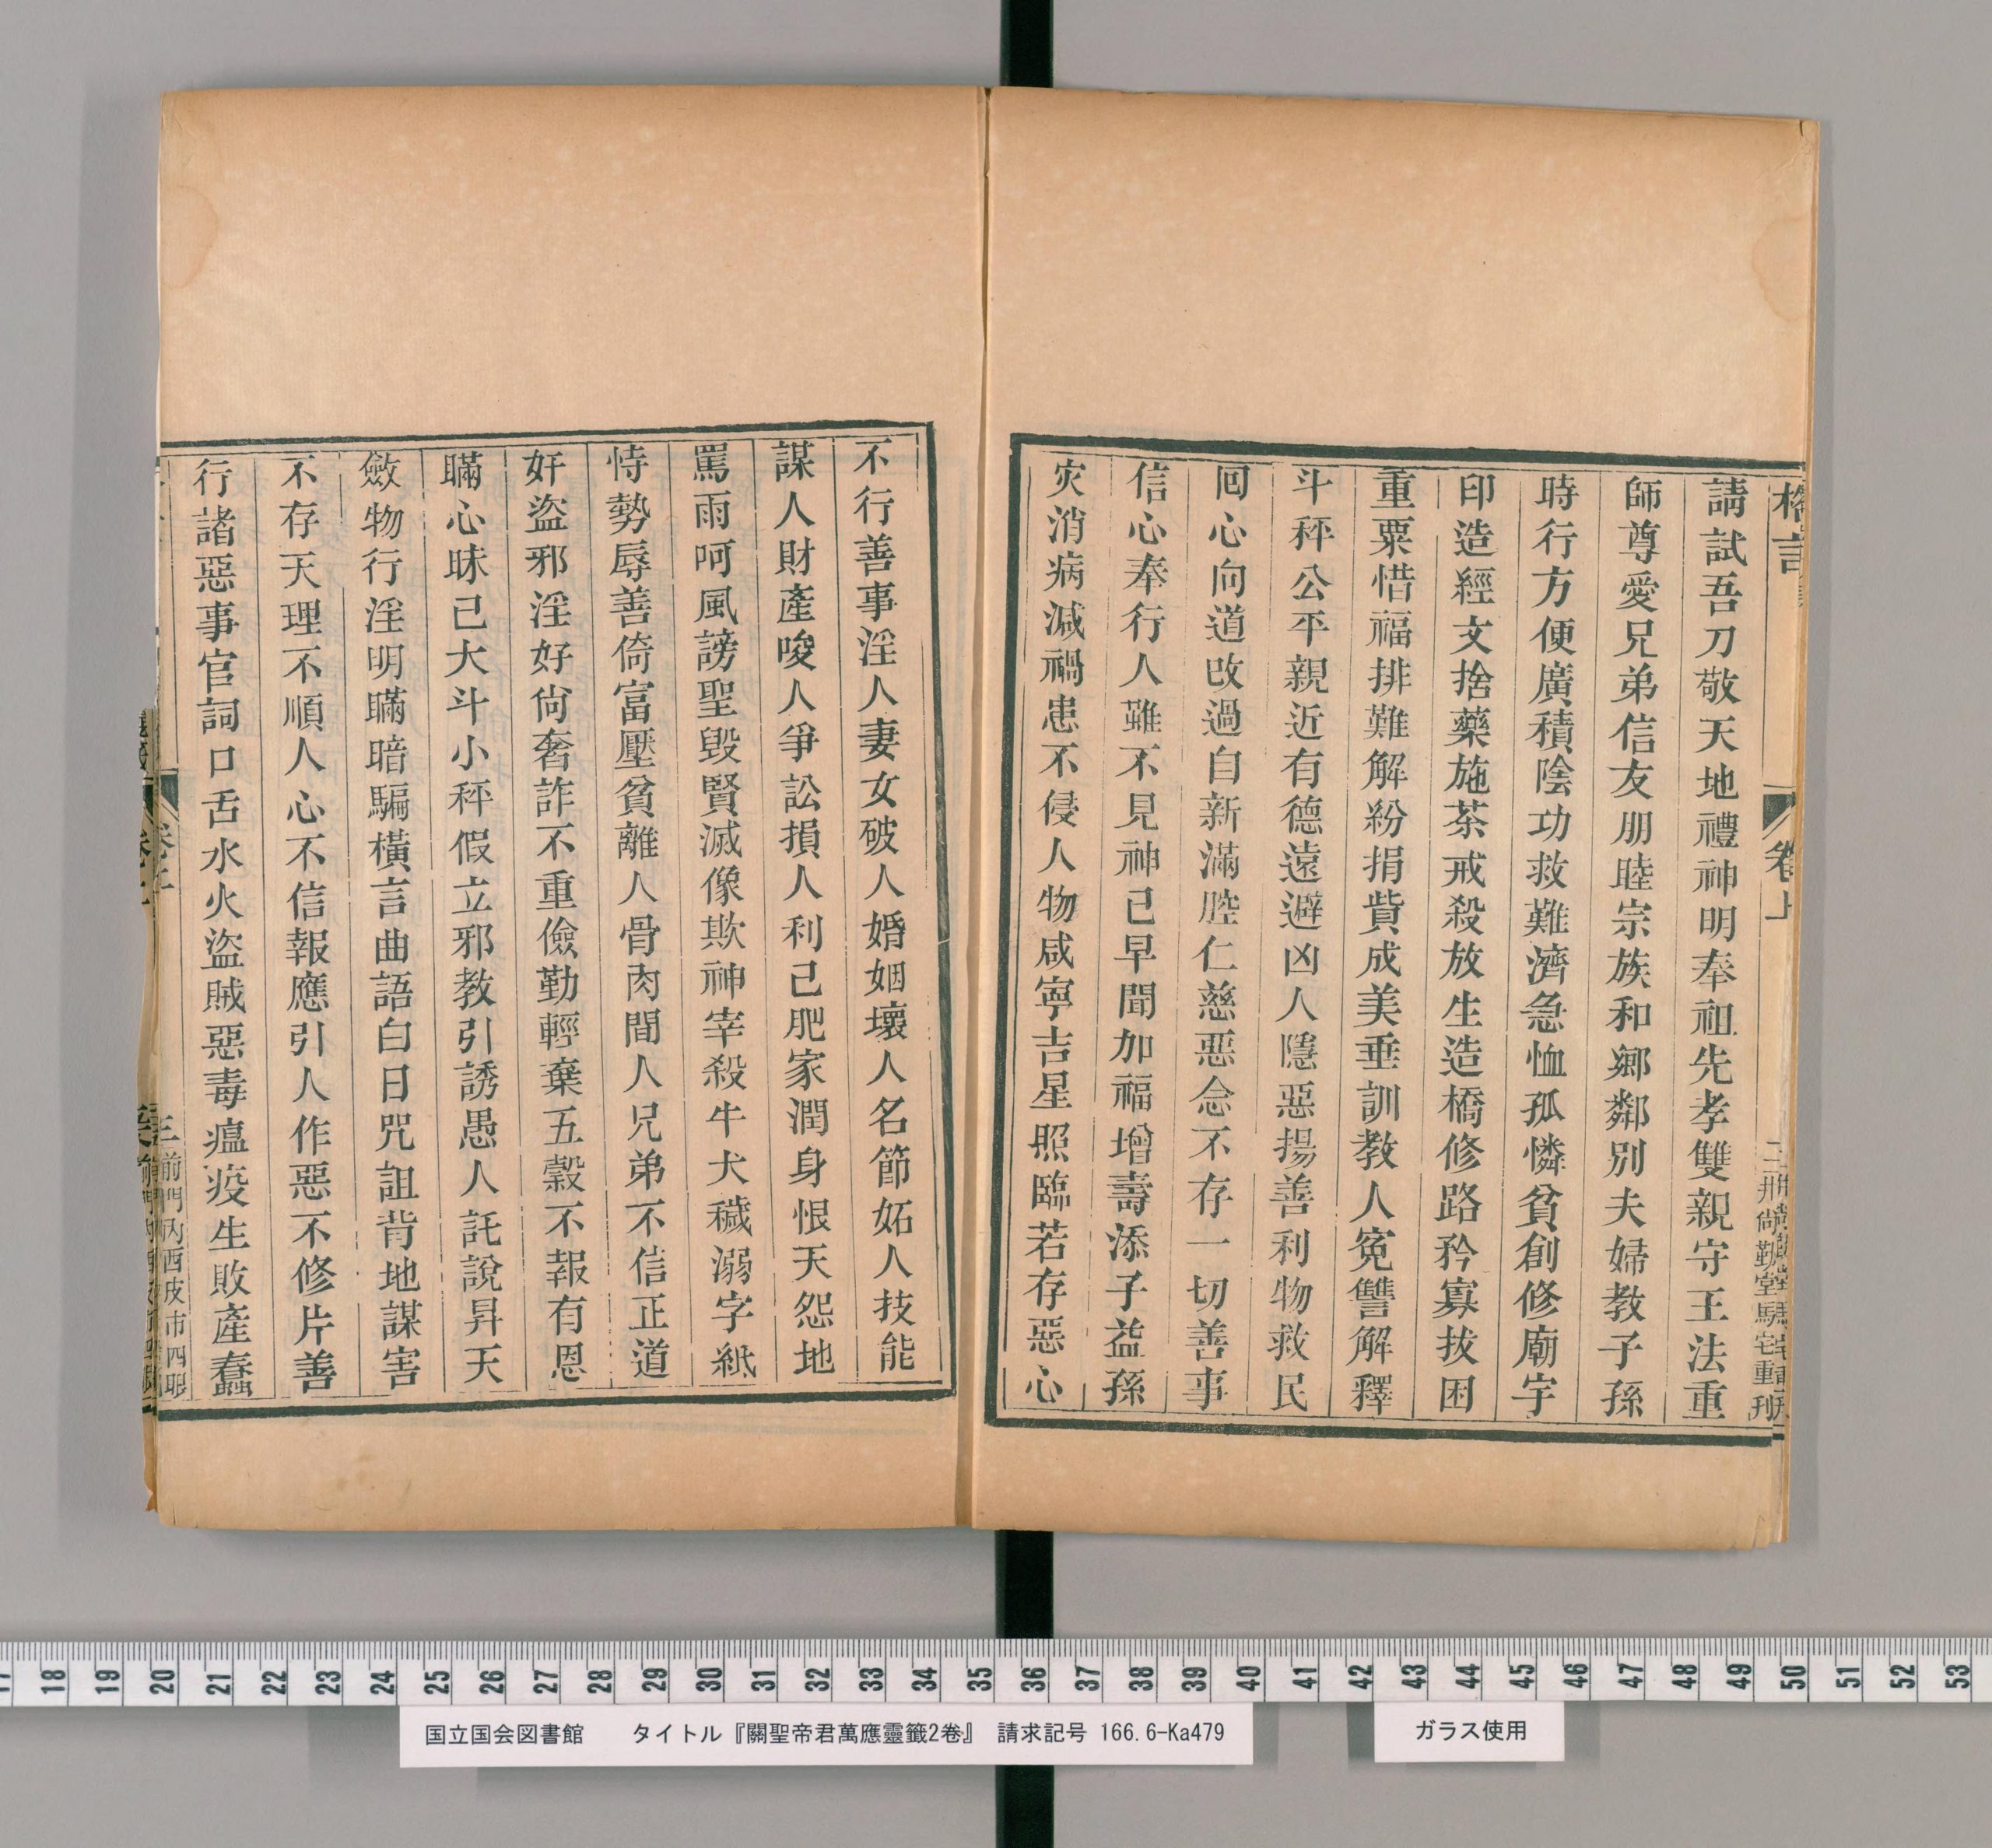 格言
卷上
二卅尙勤堂駱宅重刊
請試吾刀敬天地禮神明奉祖先孝雙親守王法重
師尊愛兄弟信友朋睦宗族和鄉鄰別夫婦教子孫
時行方便廣積陰功救難濟急恤孤憐貧創修廟宇
印造經文捨藥施茶戒殺放生造橋修路矜寡拔困
重粟惜福排難解紛捐貲成美垂訓教人冤讐解釋
斗秤公平親近有德遠避凶人隱惡揚善利物救民
囘心向道改過自新滿腔仁慈惡念不存一切善事
信心奉行人雖不見神已早聞加福增壽添子益孫
灾消病減禍患不侵人物咸寧吉星照臨若存惡心
不行善事淫人妻女破人婚姻壞人名節妬人技能
謀人財產唆人爭訟損人利己肥家潤身恨天怨地
罵雨呵風謗聖毀賢滅像欺神宰殺牛犬穢溺字紙
恃勢辱善倚富壓貧離人骨肉間人兄弟不信正道
奸盜邪淫好尙奢詐不重儉勤輕棄五穀不報有恩
瞞心昧己大斗小秤假立邪教引誘愚人託說昇天
斂物行淫明瞞暗騙橫言曲語白日咒詛背地謀害
不存天理不順人心不信報應引人作惡不修片善
行諸惡事官詞口舌水火盜賊惡毒瘟疫生敗產蠢
三前門內西皮市四眼
国立国会図書館 タイトル『關聖帝君萬應靈籤2卷』 請求記号 166.6-Ka479
ガラス使用
17 18 19 20 21 22 23 24 25 26 27 28 29 30 31 32 33 34 35 36 37 38 39 40 41 42 43 44 45 46 47 48 49 50 51 52 53